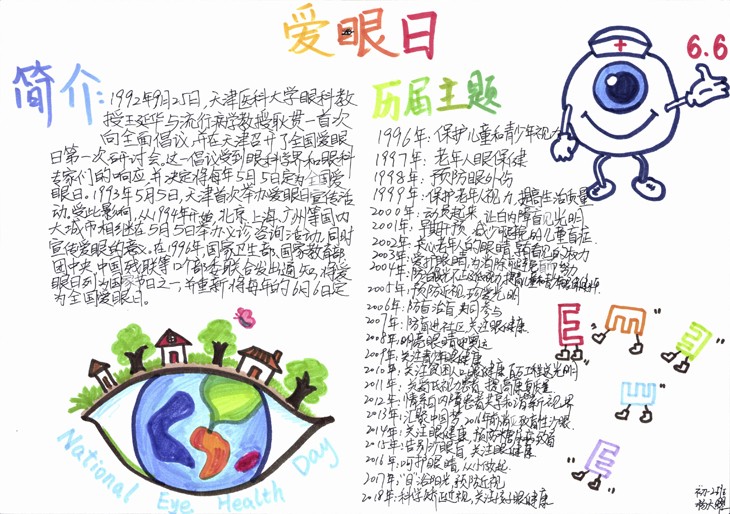 爱眼日
6.6
简介:
1992年9月25日,天津医科大学眼科教
授王延华与流行病学教授耿贯一首次
向全国倡议,并在天津召开了全国爱眼
日第一次研讨会。这一倡议受到眼科学界和眼科
专家们的响应,并决定将每年5月5日定为全国爱
眼日。1993年5月5日,天津首次举办爱眼日宣传活
动。受此影响,从1994年开始,北京、上海、广州等国内
大城市相继在5月5日举办义诊咨询活动,同时
宣传爱眼的意义。在1996年,国家卫生部、国家教育部
团中央、中国残联等12个部委联合发出通知,将爱
眼日列为国家节日之一,并重新将每年的6月6日定
为全国爱眼日。
历届主题
1996年:保护儿童和青少年视力
1997年:老年人眼保健
1998年:预防眼外伤
1999年:保护老年人视力,提高生活质量
2000年:动员起来,让白内障盲见光明
2001年:早期干预,减少可避免的儿童盲症
2002年:关心老年人的眼睛,享有看见的权力
2003年:爱护眼睛,为消除
2004年:防治
2005年:预防近视,
2006年:防盲治盲,共同参与
2007年:防盲进社区,关注眼健康
2008年:明亮眼睛迎奥运
2009年:关注青少年眼健康
2010年:关注贫困人口眼健康,百万工程送光明
2011年:关爱低视力患者,提高康复质量
2012年:情系白内障患者,共享和谐新视界
2013年:汇聚中国梦,2016年前消灭致盲性沙眼
2014年:关注眼健康,预防糖尿病致盲
2015年:告别沙眼盲,关注眼健康
2016年:呵护眼睛,从小做起
2017年:"目"浴阳光,预防近视
2018年:科学矫正近视,关注孩子眼健康
E
E
E
E
E
National Eye Health Day